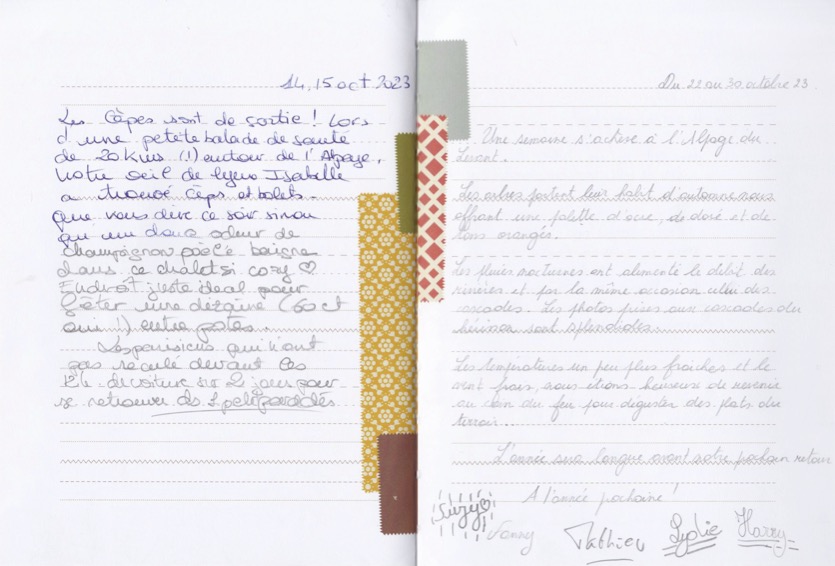 14, 15 oct 2023
Les Cèpes sont de sortie ! Lors
d'une petite balade de santé
de 20 kms (!) autour de l'Alpage,
notre oeil de lynx Isabelle
a trouvé cèps et bolets.
Que vous dire ce soir sinon
qu'une douce odeur de
champignon poêlé baigne
dans ce chalet si cozy ♡
Endroit juste idéal pour
fêter une dizaine (60 ct
oui !) entre potes.
Les parisiens qui n'ont
pas reculé devant les
de voiture sur 2 jours pour
se retrouver
Du 22 au 30 octobre 23
Une semaine s'achève à l'Alpage du
Levant.
Les arbres portent leur habit d'automne nous
offrant une palette d'ocre, de doré et de
tons orangés.
Les pluies nocturnes ont alimenté le débit des
rivières et par la même occasion celui des
cascades. Les photos prises aux cascades du
hérisson sont splendides.
Les températures un peu plus fraîches et le
vent frais, nous étions heureuse de revenir
au coin du feu pour déguster des plats du
terroir.
L'année sera longue avant notre prochain retour
A l'année prochaine !
Suzy♡
Fanny
Mathieu
Lydie
Harry